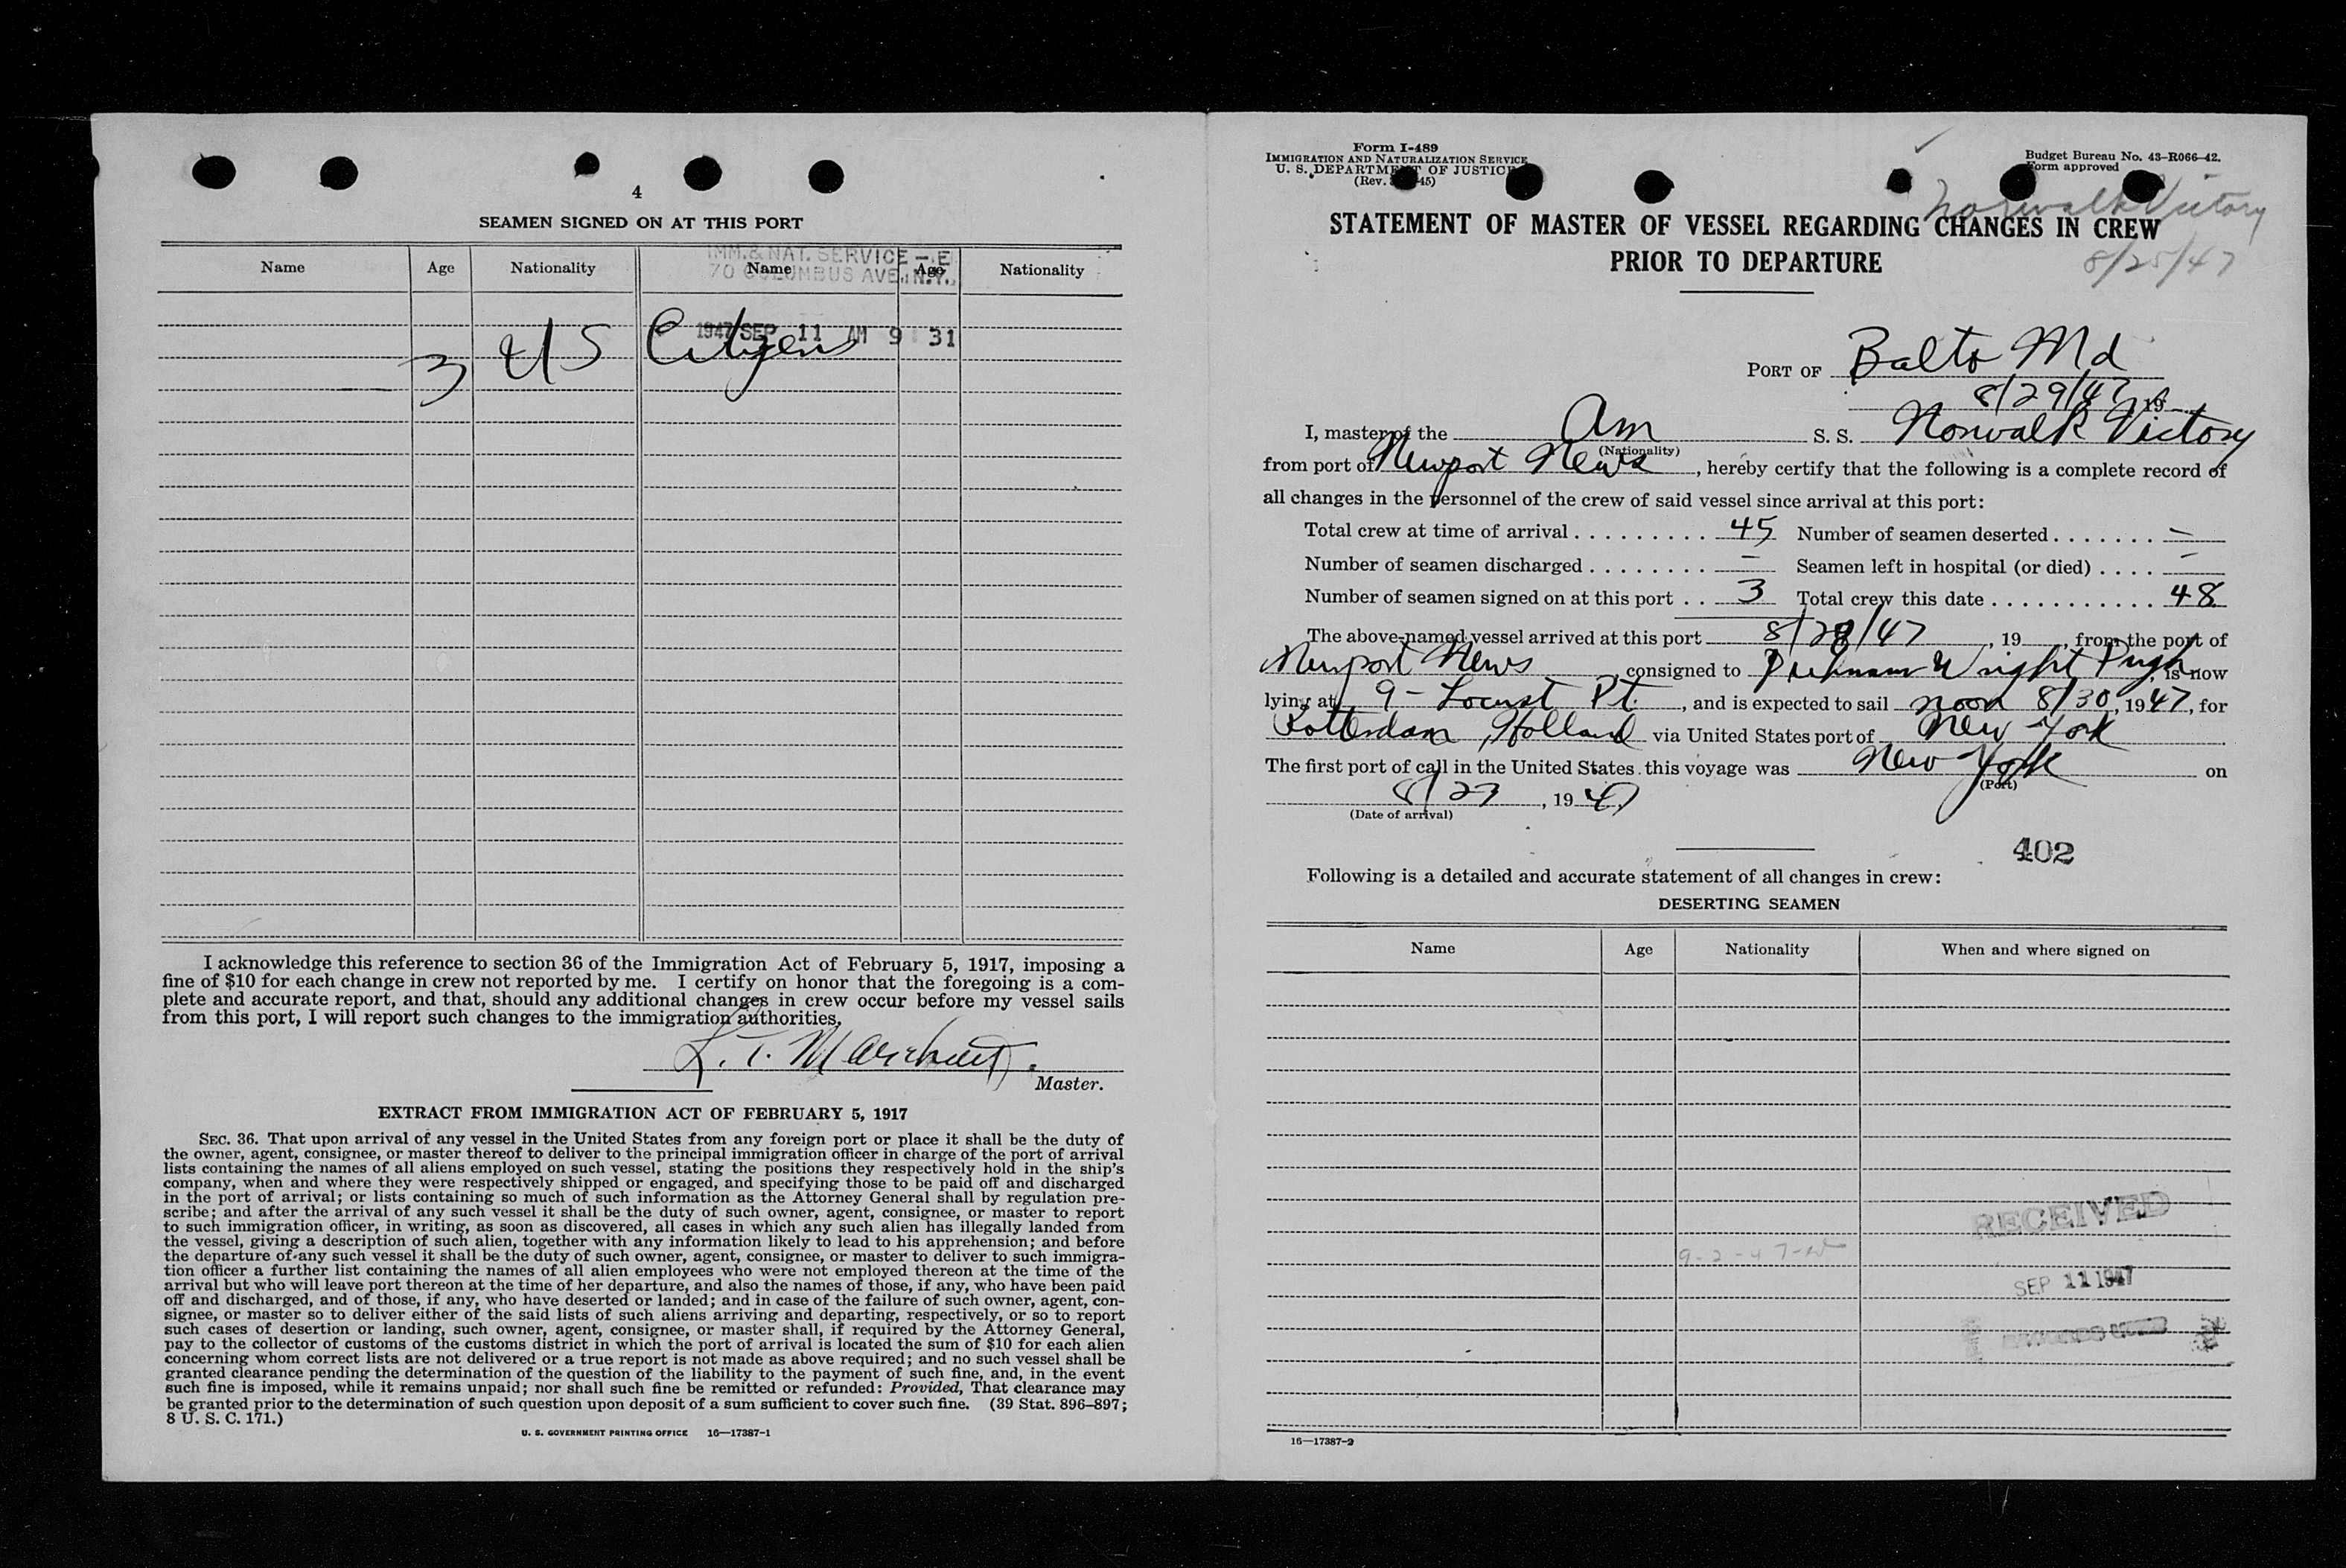 4
SEAMEN SIGNED ON AT THIS PORT
IMM. & NAT. SERVICE — E
70 COLUMBUS AVE., N.Y.
Name Age Nationality Name Age Nationality
1947 SEP 11 AM 9 31
3 US Citizens
I acknowledge this reference to section 36 of the Immigration Act of February 5, 1917, imposing a
fine of $10 for each change in crew not reported by me. I certify on honor that the foregoing is a com-
plete and accurate report, and that, should any additional changes in crew occur before my vessel sails
from this port, I will report such changes to the immigration authorities.
L. T. Marchant.
Master.
EXTRACT FROM IMMIGRATION ACT OF FEBRUARY 5, 1917
SEC. 36. That upon arrival of any vessel in the United States from any foreign port or place it shall be the duty of
the owner, agent, consignee, or master thereof to deliver to the principal immigration officer in charge of the port of arrival
lists containing the names of all aliens employed on such vessel, stating the positions they respectively hold in the ship's
company, when and where they were respectively shipped or engaged, and specifying those to be paid off and discharged
in the port of arrival; or lists containing so much of such information as the Attorney General shall by regulation pre-
scribe; and after the arrival of any such vessel it shall be the duty of such owner, agent, consignee, or master to report
to such immigration officer, in writing, as soon as discovered, all cases in which any such alien has illegally landed from
the vessel, giving a description of such alien, together with any information likely to lead to his apprehension; and before
the departure of any such vessel it shall be the duty of such owner, agent, consignee, or master to deliver to such immigra-
tion officer a further list containing the names of all alien employees who were not employed thereon at the time of the
arrival but who will leave port thereon at the time of her departure, and also the names of those, if any, who have been paid
off and discharged, and of those, if any, who have deserted or landed; and in case of the failure of such owner, agent, con-
signee, or master so to deliver either of the said lists of such aliens arriving and departing, respectively, or so to report
such cases of desertion or landing, such owner, agent, consignee, or master shall, if required by the Attorney General,
pay to the collector of customs of the customs district in which the port of arrival is located the sum of $10 for each alien
concerning whom correct lists are not delivered or a true report is not made as above required; and no such vessel shall be
granted clearance pending the determination of the question of the liability to the payment of such fine, and, in the event
such fine is imposed, while it remains unpaid; nor shall such fine be remitted or refunded: Provided, That clearance may
be granted prior to the determination of such question upon deposit of a sum sufficient to cover such fine. (39 Stat. 896-897;
8 U. S. C. 171.)
U. S. GOVERNMENT PRINTING OFFICE 16—17387-1
Form I-489
IMMIGRATION AND NATURALIZATION SERVICE
U. S. DEPARTMENT OF JUSTICE
(Rev. 45)
Budget Bureau No. 43-R066-42.
Form approved
Norwalk Victory
8/25/47
STATEMENT OF MASTER OF VESSEL REGARDING CHANGES IN CREW
PRIOR TO DEPARTURE
PORT OF Balto Md
8/29/47, 19
I, master of the Am S. S. Norwalk Victory
(Nationality)
from port of Newport News, hereby certify that the following is a complete record of
all changes in the personnel of the crew of said vessel since arrival at this port:
Total crew at time of arrival . . . . . . . . . 45 Number of seamen deserted . . . . . . . —
Number of seamen discharged . . . . . . . . — Seamen left in hospital (or died) . . . . —
Number of seamen signed on at this port . . 3 Total crew this date . . . . . . . . . . . 48
The above-named vessel arrived at this port 8/28/47, 19, from the port of
Newport News, consigned to Wright Pugh, is now
lying at 9 - Locust Pt., and is expected to sail noon 8/30, 1947, for
Rotterdam, Holland via United States port of New York
The first port of call in the United States this voyage was New York on
(Port)
8/23, 1947
(Date of arrival)
402
Following is a detailed and accurate statement of all changes in crew:
DESERTING SEAMEN
Name Age Nationality When and where signed on
RECEIVED
9-2-47
SEP 11 1947
16—17387-2